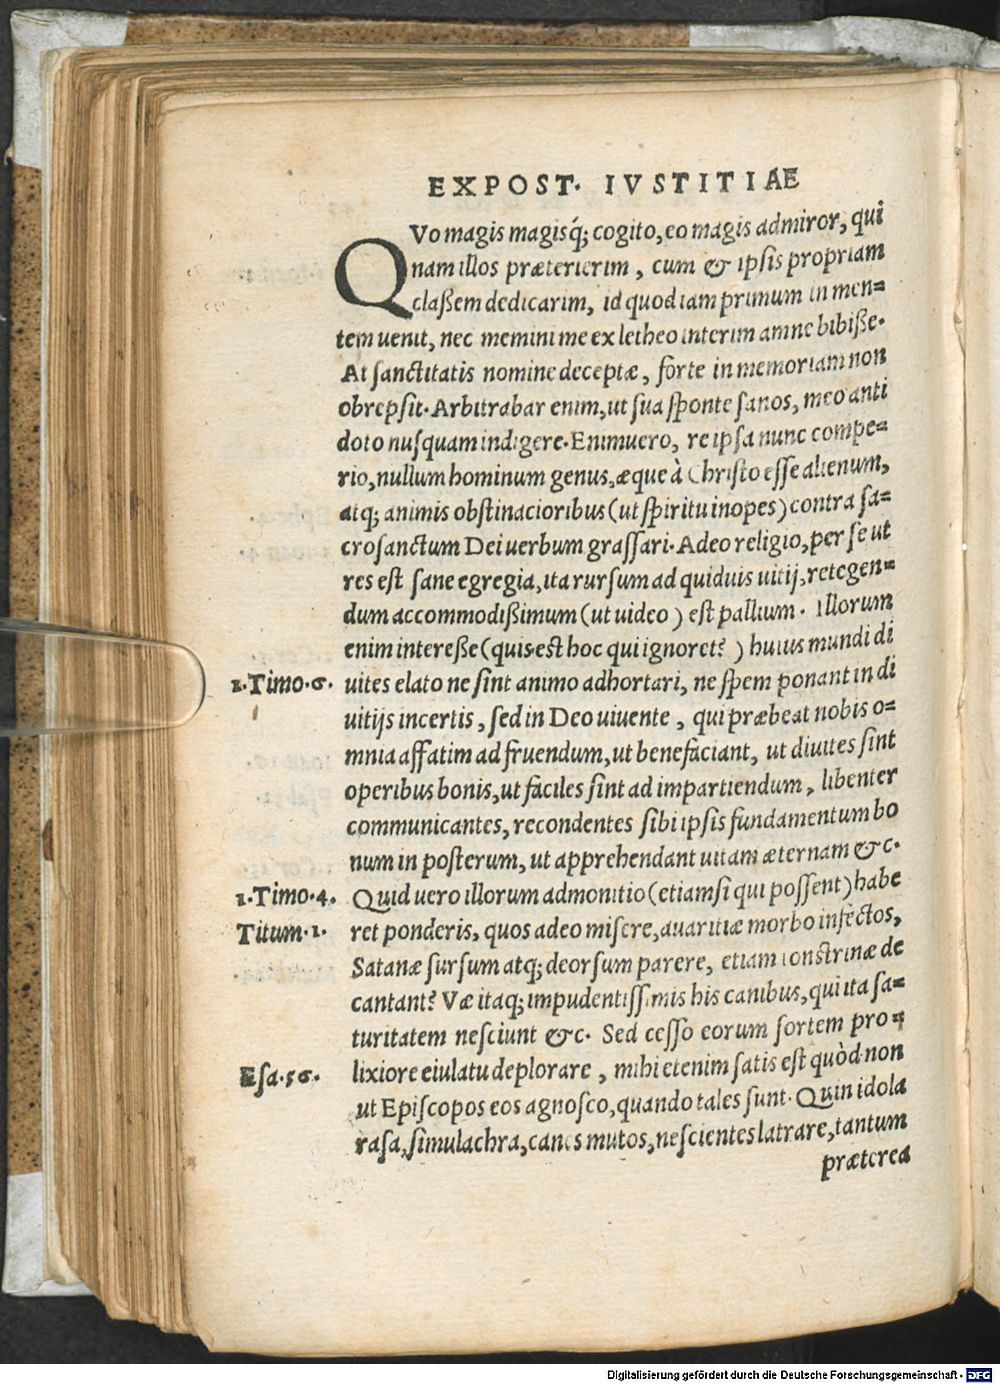 EXPOST. IVSTITIAE
QVo magis magisq́; cogito, eo magis admiror, qui
nam illos præterierim, cum & ipsis propriam
claßem dedicarim, id quod iam primum in men=
tem uenit, nec memini me ex letheo interim amne bibiße.
At sanctitatis nomine deceptæ, forte in memoriam non
obrepsit. Arbitrabar enim, ut sua sponte sanos, meo anti
doto nusquam indigere. Enimuero, re ipsa nunc compe=
rio, nullum hominum genus, æque à Christo esse alienum,
atq; animis obstinacioribus (ut spiritu inopes) contra sa=
crosanctum Dei uerbum grassari. Adeo religio, per se ut
res est sane egregia, ita rursum ad quiduis uitij, retegen=
dum accommodißimum (ut uideo) est pallium. Illorum
enim intereße (quis est hoc qui ignoret?) huius mundi di
1. Timo. 6. uites elato ne sint animo adhortari, ne spem ponant in di
uitijs incertis, sed in Deo uiuente, qui præbeat nobis o=
mnia affatim ad fruendum, ut benefaciant, ut diuites sint
operibus bonis, ut faciles sint ad impartiendum, libenter
communicantes, recondentes sibi ipsis fundamentum bo
num in posterum, ut apprehendant uitam æternam &c.
1. Timo. 4. Quid uero illorum admonitio (etiamsi qui possent) habe
Titum. 1. ret ponderis, quos adeo misere, auaritiæ morbo infectos,
Satanæ sursum atq; deorsum parere, etiam tonstrinæ de
cantant? Væ itaq; impudentissimis his canibus, qui ita sa=
turitatem nesciunt &c. Sed cesso eorum sortem pro=
Esa. 56. lixiore eiulatu deplorare, mihi etenim satis est quòd non
ut Episcopos eos agnosco, quando tales sunt. Quin idola
rasa, simulachra, canes mutos, nescientes latrare, tantum
præterea
Digitalisierung gefördert durch die Deutsche Forschungsgemeinschaft - DFG